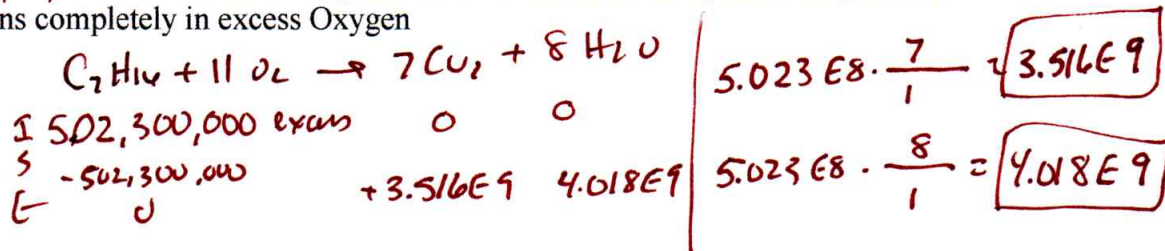 ns completely in excess Oxygen
C₇H₁₆ + 11 O₂ → 7 CO₂ + 8 H₂O
I 502,300,000 excess 0 0
S -502,300,000 +3.516E9 4.018E9
E 0
5.023 E8 · 7/1 = 3.516E9
5.023 E8 · 8/1 = 4.018E9